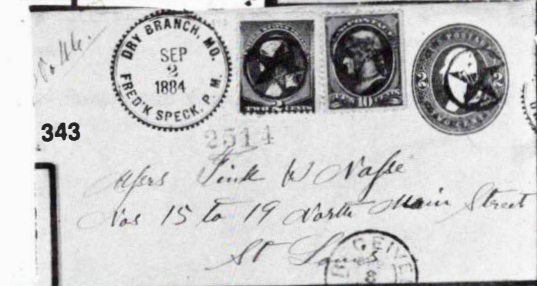 DRY BRANCH, MO.
SEP
2
1884
FRED'K SPECK, P. M.
2
10
2
2
343
2514
Messrs Fink & Nasse
Nos 15 to 19 North Main Street
St Louis